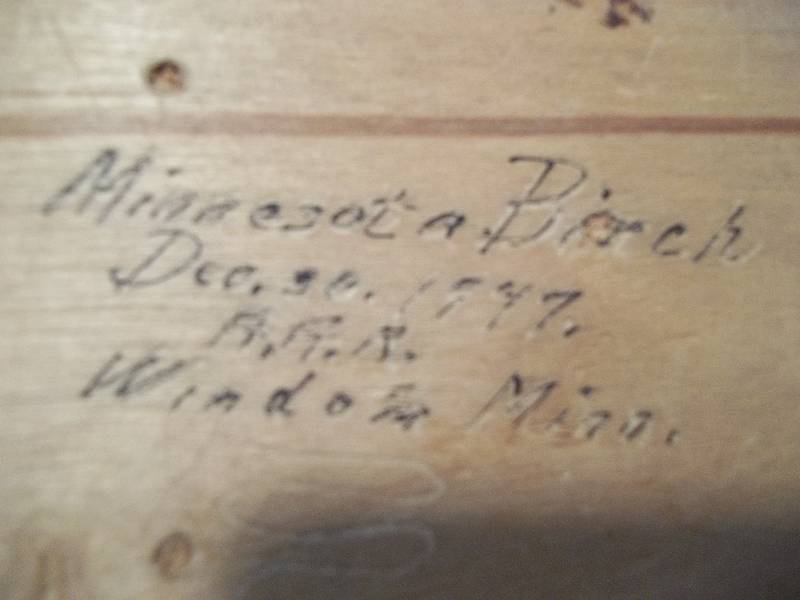 Minnesota Birch
Dec. 30. 1947.
R.R.R.
Windom Minn.